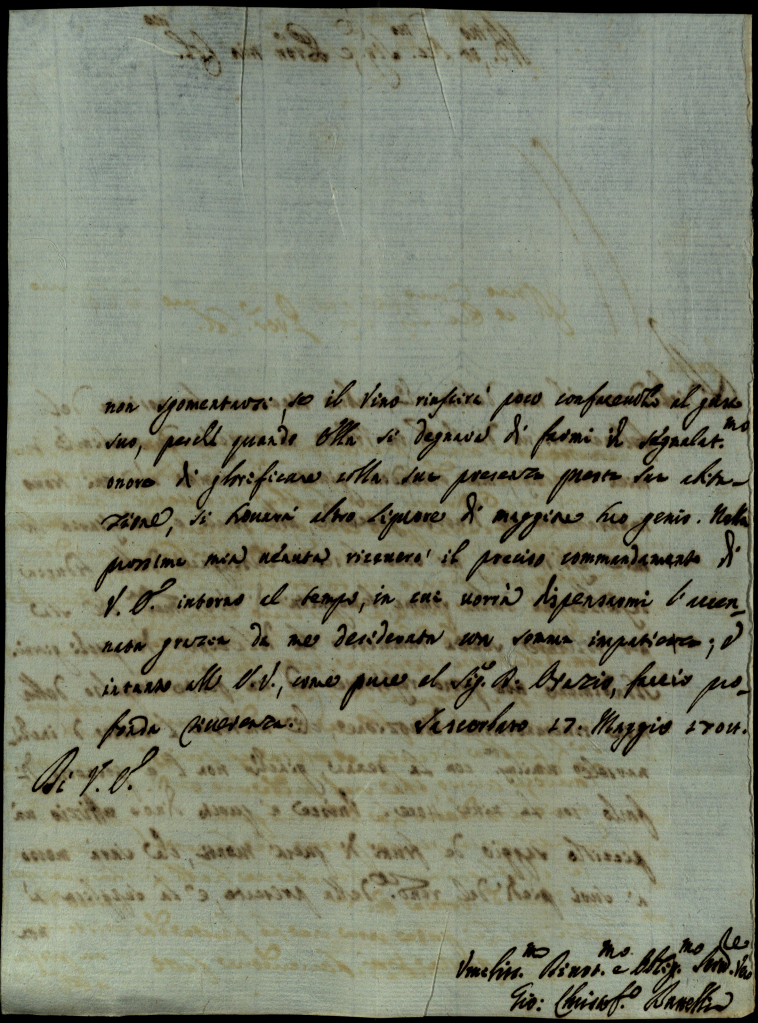 non sgomentarsi, se il vino riuscirà poco confacevole al gusto
suo, perché quando Ella si degnarà di farmi il segnalat.mo
onore di glorificare colla sua presenza questa sua abita-
zione, si trovarà altro liquore di maggiore suo genio. Nella
prossima mia venuta riceverò il preciso commandamento di
V. S. intorno al tempo, in cui vorrà dispensarmi l'accen-
nata grazia da me desiderata con somma impatienza; e
intanto all V. S., come pure al Sig. D. Orazio, faccio pro-
fonda riverenza. 17. Maggio
Di V. S.
Umiliss.mo Devot.mo e Oblig.mo Serv.re
Gio: Christof.o